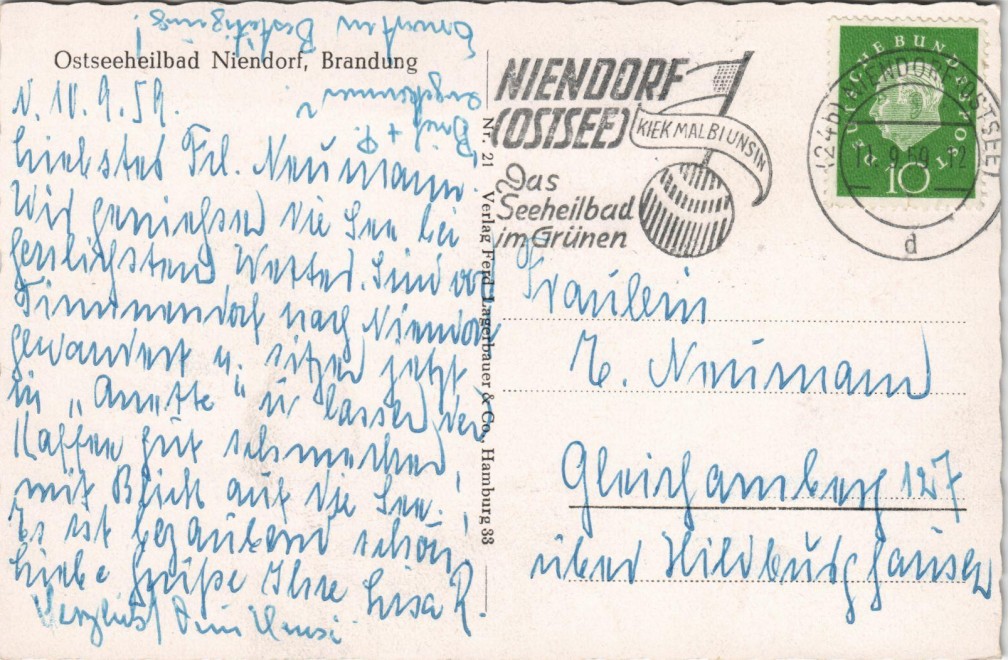 Ostseeheilbad Niendorf, Brandung
N. 10.9.59.
Liebstes Frl. Neumann.
Wir genießen die See bei
herrlichstem Wetter. Sind von
Timmendorf nach Niendorf
gewandert u. sitzen jetzt
in „Anette" u. lassen den
Kaffee gut schmecken,
mit Blick auf die See.
Es ist bezaubernd schön.
Liebe Grüße Ihre Lisa R.
Herzlichst Ihre
Brief +
angekommen
Erwarten Bestätigung!
Nr. 21 Verlag Ferd. Lagerbauer & Co., Hamburg 33
NIENDORF
(OSTSEE)
KIEK MAL BI UNS IN
Das
Seeheilbad
im Grünen
DEUTSCHE BUNDESPOST
10
(24b) NIENDORF (OSTSEE)
11.9.59.-12
d
Fräulein
E. Neumann
Gleichamberg 127
über Hildburghausen